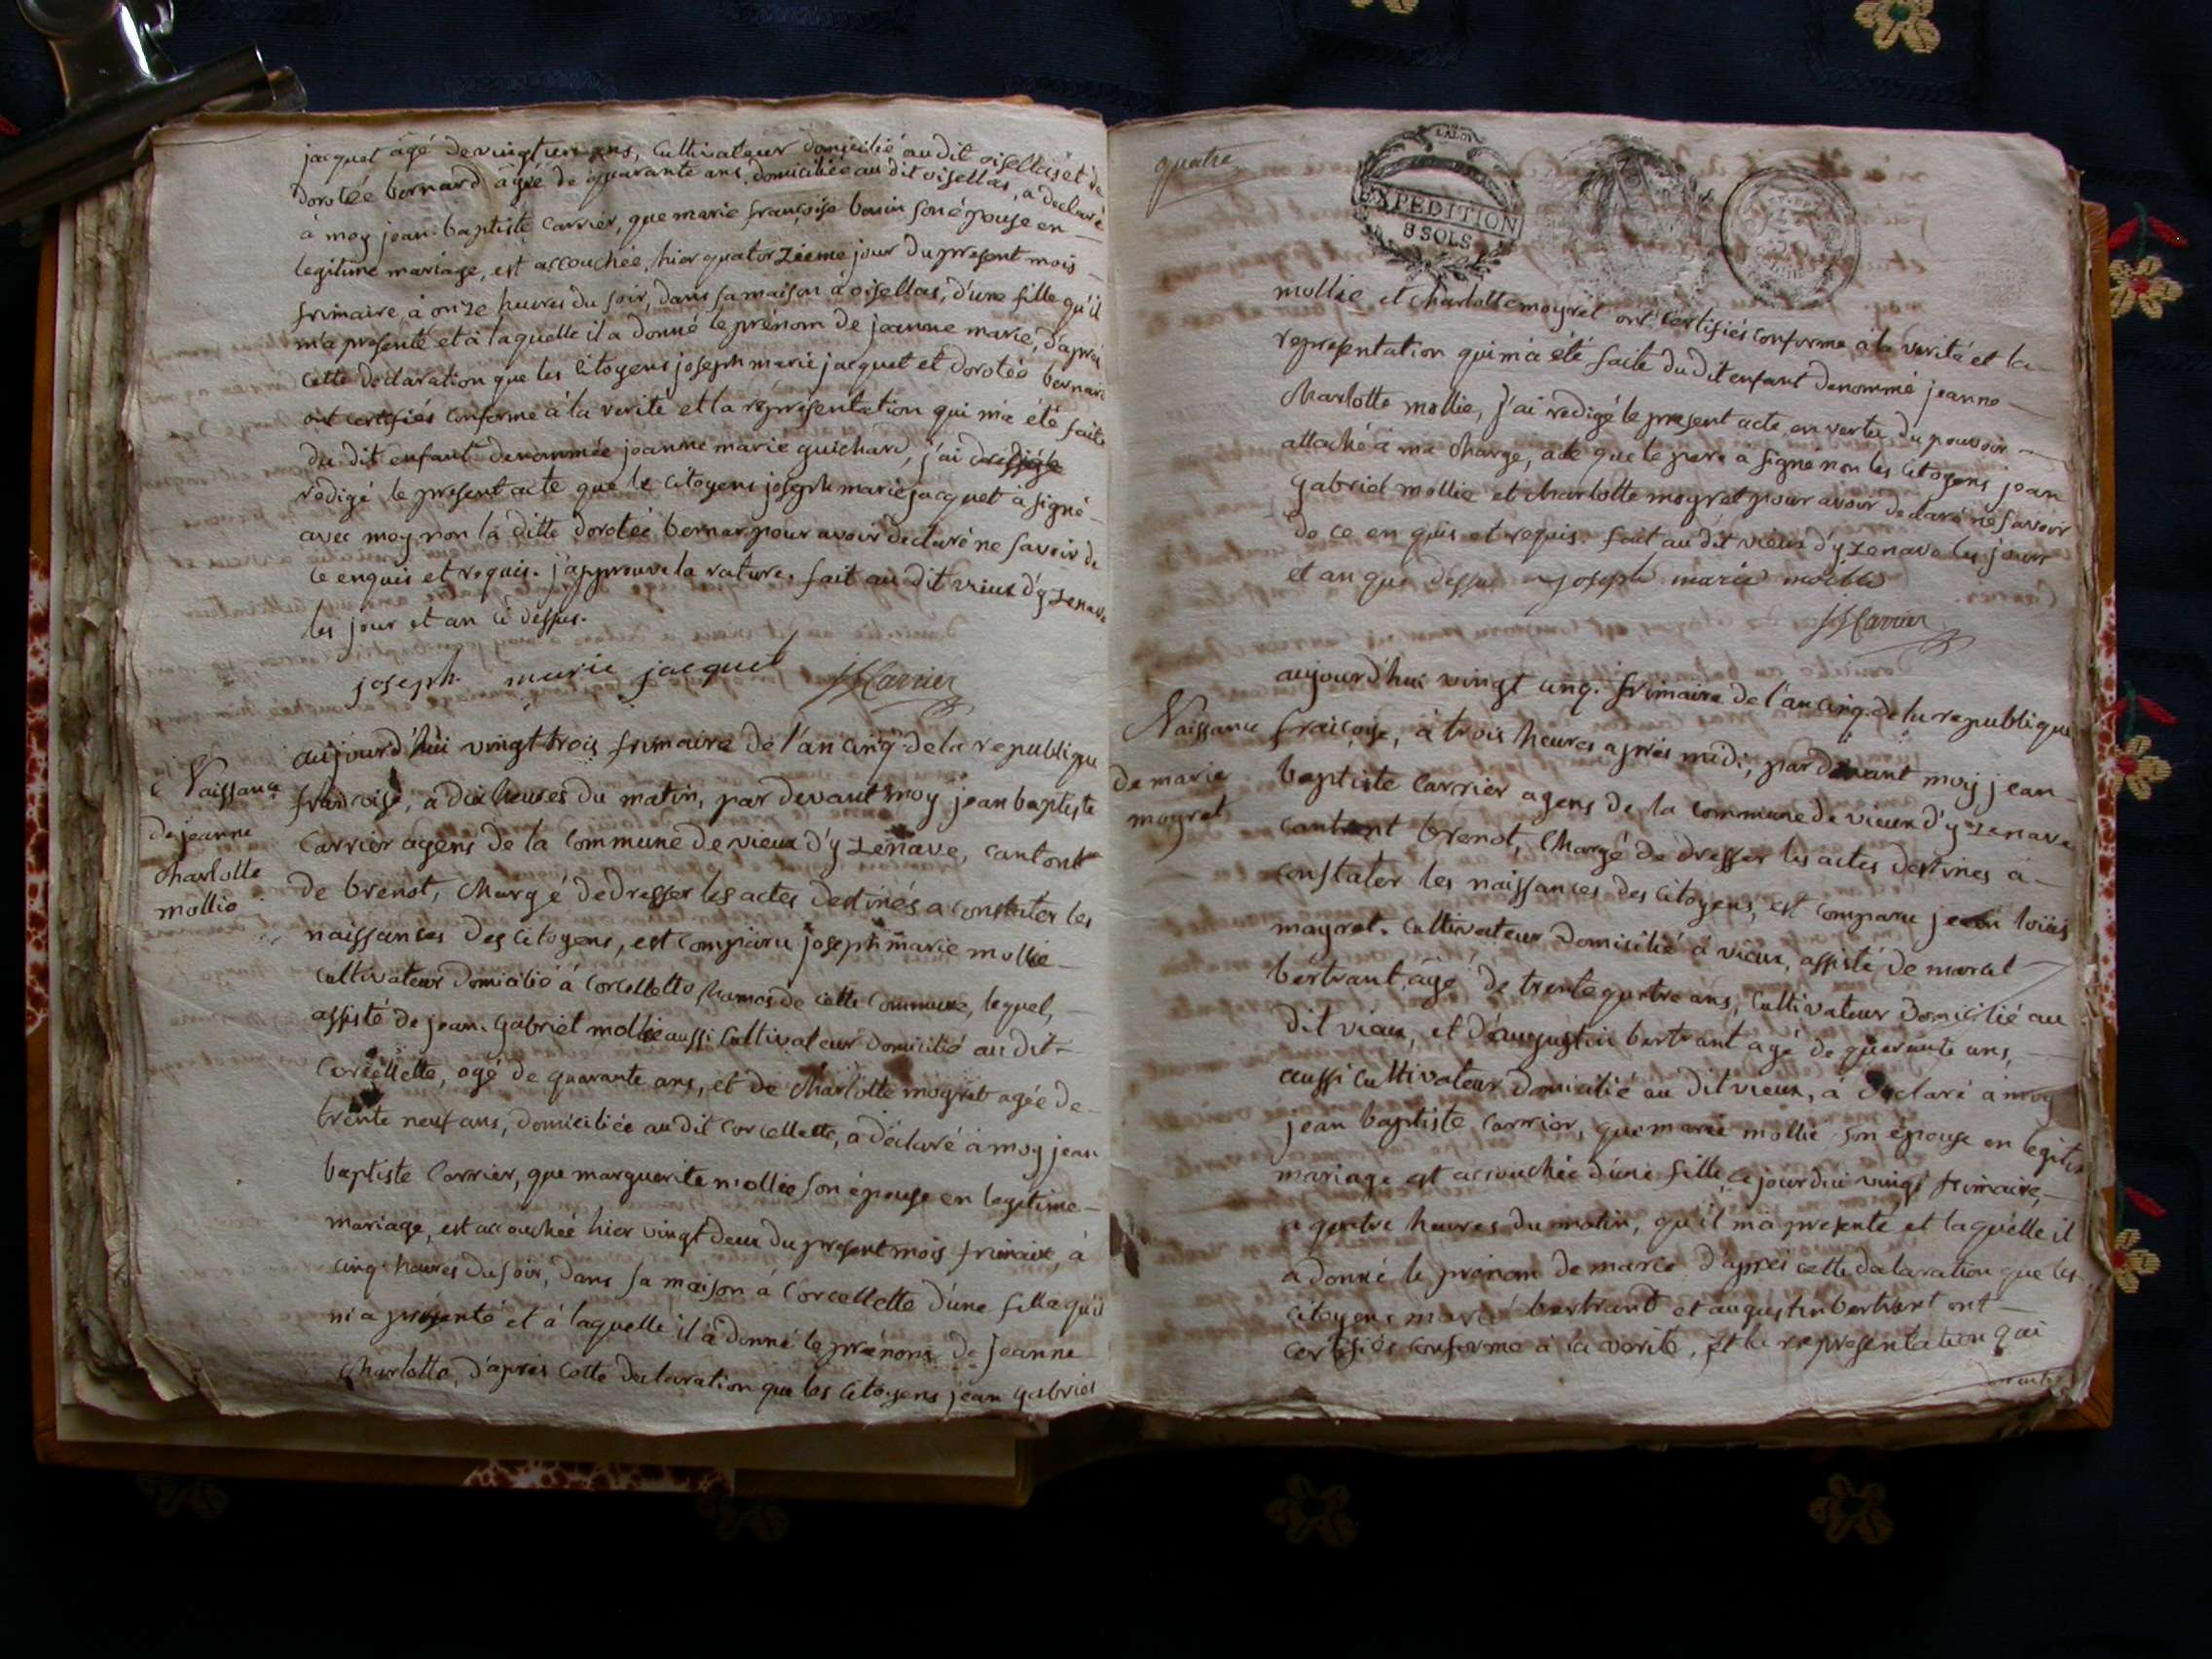 jacquet agé de vingt un ans, Cultivateur domicilié au dit oisellas et de
dorotée bernard agée de quarante ans domiciliée au dit oisellas, a declaré
à moy jean baptiste Carrier, que marie françoise bouin son épouse en
legitime mariage, est accouchée, hier quatorzieme jour du present mois
frimaire, à onze heures du soir, dans sa maison à oisellas, d'une fille qu'il
m'a presenté et à laquelle il a donné le prénom de jeanne marie, d'après
cette declaration que les Citoyens joseph marie jacquet et dorotée bernard
ont certifiés conforme à la verité et la représentation qui m'a été faite
du dit enfant denommée jeanne marie guichard, j'ai
redigé le present acte que le Citoyens joseph marie jacquet à signé
avec moy non la ditte dorotée bernar pour avoir declaré ne savoir de
ce enquis et requis. j'approuve la rature. fait au dit vieux d'yzenave
les jour et an ci dessus.
joseph marie jacquet JBCarrier
Naissance
de jeanne
charlotte
mollie
aujourd'hui vingt trois frimaire de l'an cinq de la republique
francoise, à dix heures du matin, par devant moy jean baptiste
Carrier agens de la Commune de vieux d'yzenave, cantont
de brenot, Chargé de dresser les actes destinés a constater les
naissances des citoyens, est comparu joseph marie mollie
cultivateur domicilié à Corcellette hamos de cette Commune, lequel,
assisté de jean gabriel mollie aussi Cultivateur domicilié au dit
Corcellette, agé de quarante ans, et de Charlotte moyret agée de
trente neuf ans, domiciliée au dit corcellette, a déclaré à moy jean
baptiste Carrier, que marguerite mollie son épouse en legitime
mariage, est accouchée hier vingt deux du present mois frimaire, à
cinq heures du soir, dans sa maison à Corcellette d'une fille qu'il
m'a présenté et à laquelle il à donné le prénom de jeanne
charlotte, d'après cette declaration que les Citoyens jean gabriel
quatre
LA LOI
EXPEDITION
8 SOLS
mollie et charlotte moyret ont certifiés conforme à la verité et la
representation qui m'a été faite du dit enfant denommé jeanne
Charlotte mollie, j'ai redigé le present acte, en vertu du pouvoir
attaché à ma charge, acte que le pere a signé non les Citoyens jean
gabriel mollie et charlotte moyret pour avoir declaré ne savoir
de ce en quis et requis. fait au dit vieux d'yzenave les jour
et an que dessus joseph marie mollie
JBCarrier
Naissance
de marie
moyret
aujourd'hui vingt cinq. frimaire de l'an cinq de la republique
fraiçoise, à trois heures après midi, par devant moy jean
baptiste Carrier agens de la Commune de vieux d'yzenave
cantont brenot, Chargé de dresser les actes destines à
constater les naissances des Citoyens, est comparu jean loüis
moyret. Cultivateur domicilié à vieux, assisté de marcel
bertrant, agé de trente quatre ans, Cultivateur domicilié au
dit vieux, et d'augustin bertrant agé de quarante ans,
aussi cultivateur domicilié au dit vieux, à declaré à moy
jean baptiste Carrier, que marie mollie son épouse en legitime
mariage est accouchée d'une fille, ce jourdui vingt frimaire,
a quatre heures du matin, qu'il m'a presenté et laquelle il
a donné le prénom de marie d'après cette declaration que les
citoyens bertrant et augustin bertrant ont
certifiés conforme à la verité, et la representation qui